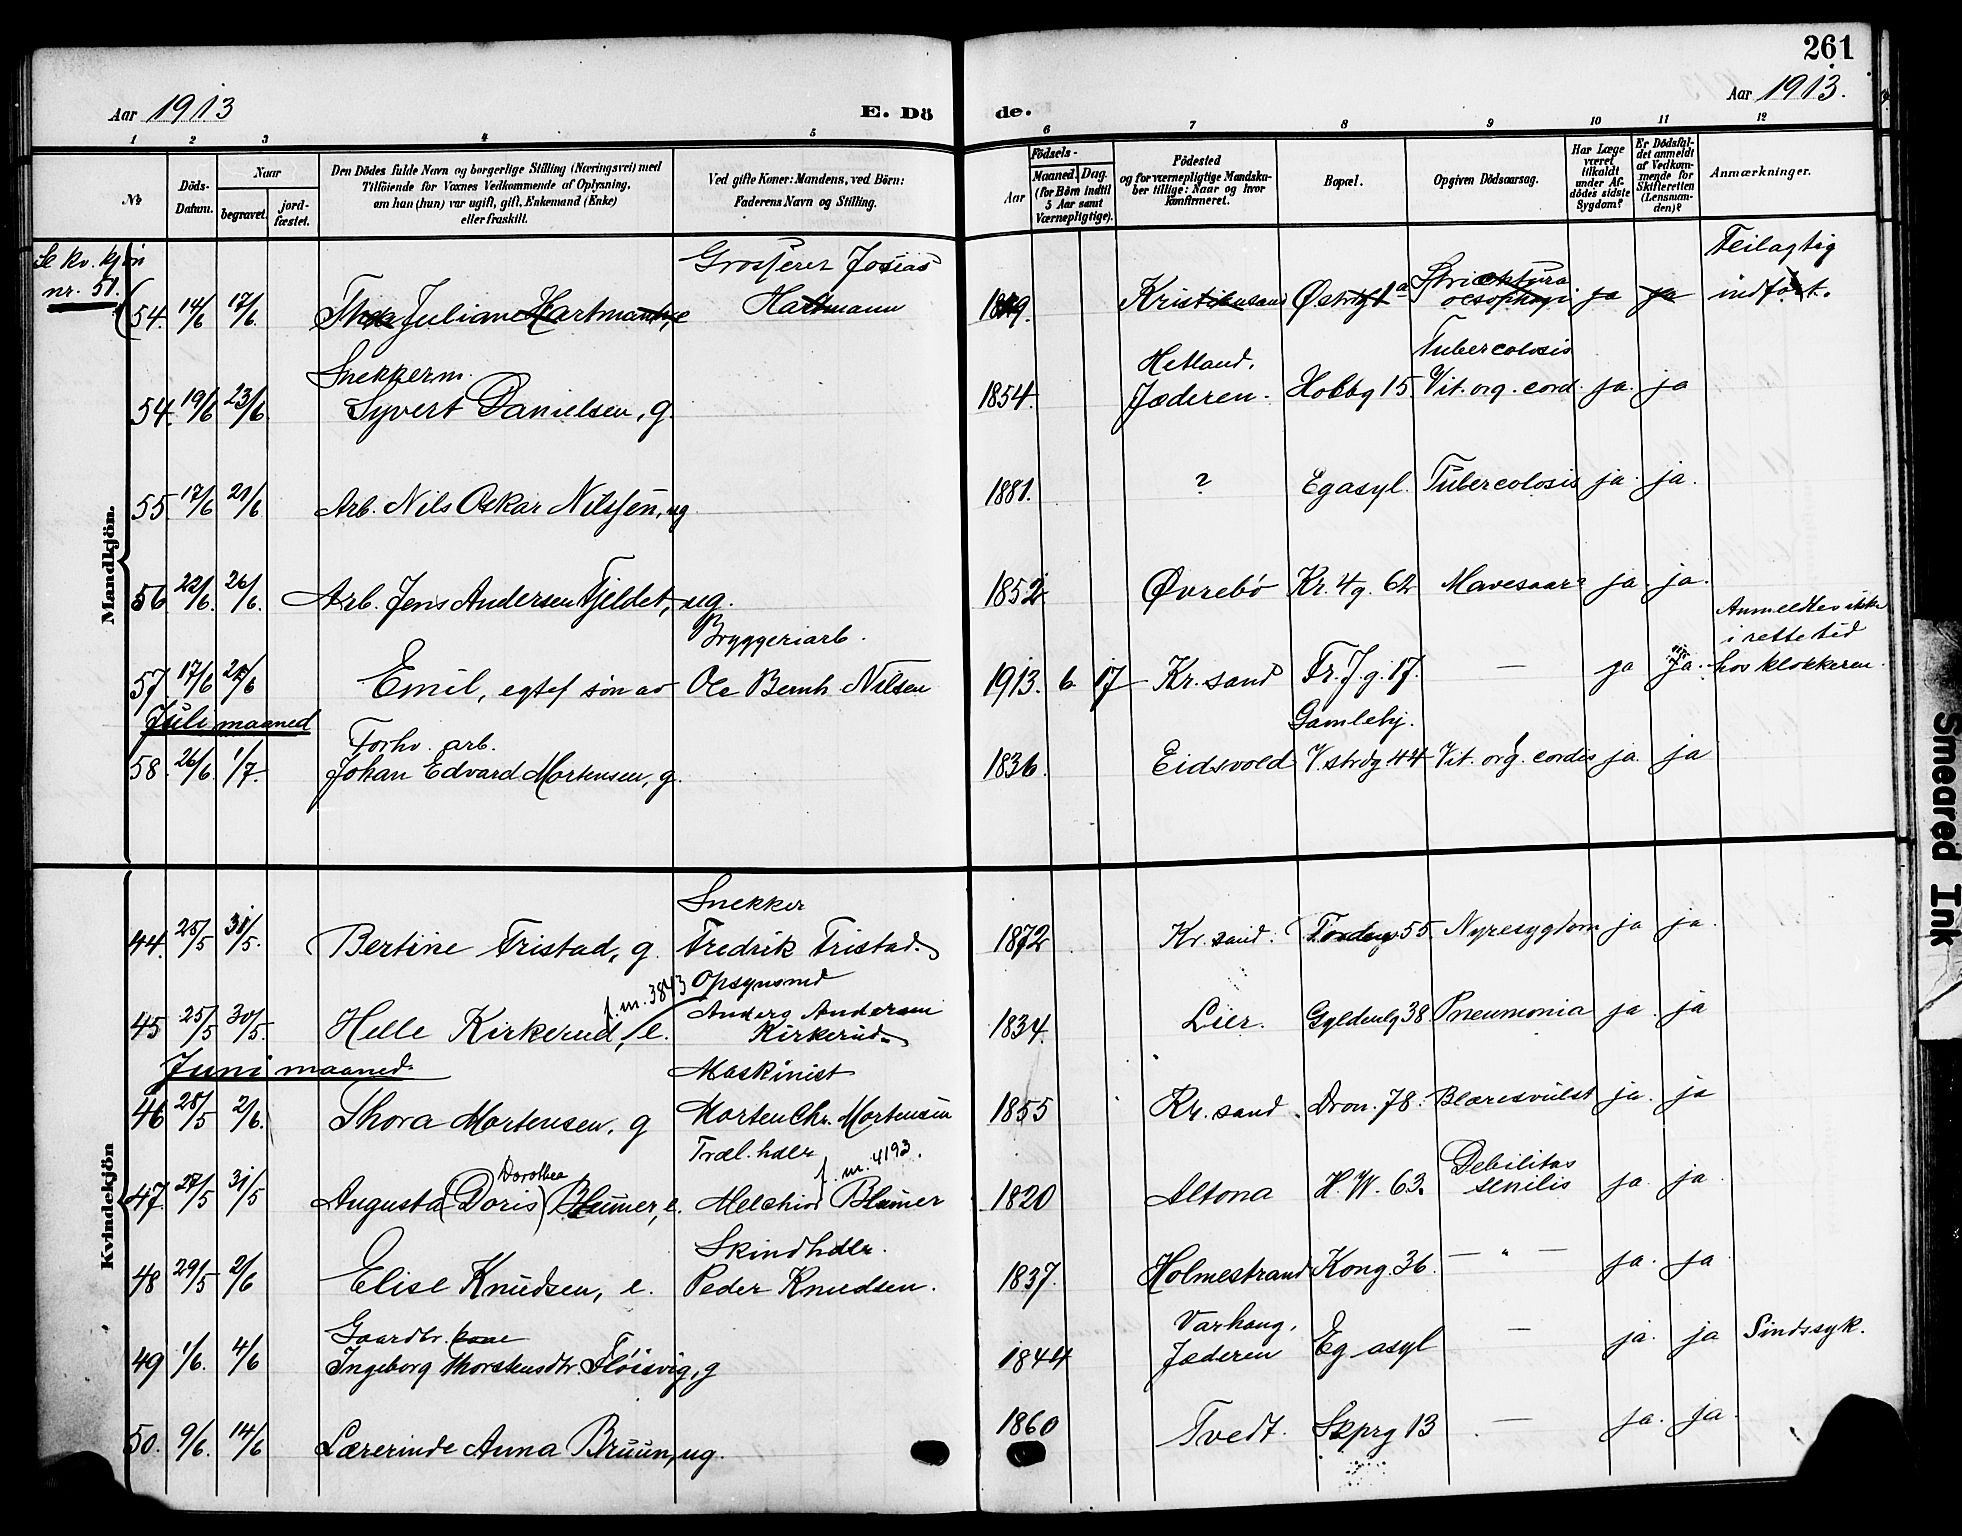 261
Aar 1913
E. Dö de.
Aar 1913.
1 2 3 4 5 6 7 8 9 10 11 12
№
Döds-Datum.
Naar
begravet.
jord-fæstet.
Den Dödes fulde Navn og borgerlige Stilling (Næringsvei) med
Tilföiende for Voxnes Vedkommende af Oplysning,
om han (hun) var ugift, gift, Enkemand (Enke)
eller fraskilt.
Ved gifte Koner: Mandens, ved Börn:
Faderens Navn og Stilling.
Födsels-
Aar
Maaned. Dag.
(for Börn indtil
5 Aar samt
Værnepligtige).
Födested
og for værnepligtige Mandska-
ber tillige: Naar og hvor
Konfirmeret.
Bopæl.
Opgiven Dödsaarsag.
Har Læge
været
tilkaldt
under Af-
dödes sidste
Sygdom?
Er Dödsfal-
det anmeldt
af Vedkom-
mende for
Skifteretten
(Lensman-
den)?
Anmærkninger.
Mandkjön.
Se kv. kjön
nr. 51.
Grosserer Josias
Feilagtig
54. 14/6 17/6. Thea Juliane Hartmann, e Hartmann 1849. Kristiansand Østrstft Strictura oesophagi ja ja indført.
Snekkerm. Hetland. Tubercolosis
54. 19/6 23/6. Syvert Danielsen, g 1854. Jæderen. Holbg 15. Vit. org. cord. ja. ja
55. 17/6 21/6. Arb. Nils Oskar Nilssen, ug 1881. ? Egasyl. Tubercolosis ja. ja.
56 22/6. 26/6. Arb. Jens Andersen Fjeldet, ug. 1852 Øvrebö Kr. 4g. 62 Mavesaar ja. ja.
Bryggeriarb. Anmeldtes ikke
i rette tid
57. 17/6 21/6 Emil, egtef søn av Ole Bernh Nilsen 1913. 6. 17 Kr. sand Fr. J. g. 17. — ja ja. hos klokkeren.
Juli maaned
Forhv. arb. Gamlehj.
58. 26/6. 1/7. Johan Edvard Mortensen, g. 1836. Eidsvold V. strdg 44 Vit. org. cordis ja. ja
Kvindekjön
Snekker
44. 25/5 31/5. Bertine Fristad, g. Fredrik Fristad. 1872 Kr. sand. Tordeng 55. Nyresygdom ja ja.
f. m. 3843 Opsynsmd
45 25/5 30/5. Helle Kirkerud, e. Anders Andersen Kirkerud. 1834. Lier. Gyldenlg 38. Pneumonia ja. ja
Juni maaned. Maskinist
46 28/5 2/6. Thora Mortensen, g Morten Chr. Mortensen 1855 Kr. sand. Dron. 78. Blæresvulst ja. ja
Dorothea Træl. hdlr f. m. 4193. Debilitas
47. 28/5 31/5 Augusta (Doris) Blumer, e. Melchior Blumer 1820 Altona H. W. 63. senilis ja. ja.
Skindhdlr.
48 29/5 2/6 Elise Knudsen, e. Peder Knudsen. 1837. Holmestrand Kong. 36. — „ — ja. ja
Gaardbr. kone Varhaug,
49 1/6. 4/6 Ingeborg Thorstensdtr. Fløisvig, g 1844 Jæderen Eg asyl — ja. ja Sindssyk.
50. 9/6. 14/6 Lærerinde Anna Bruun, ug. 1860 Tvedt. Skprg 13 — ja. ja.
Smeared Ink